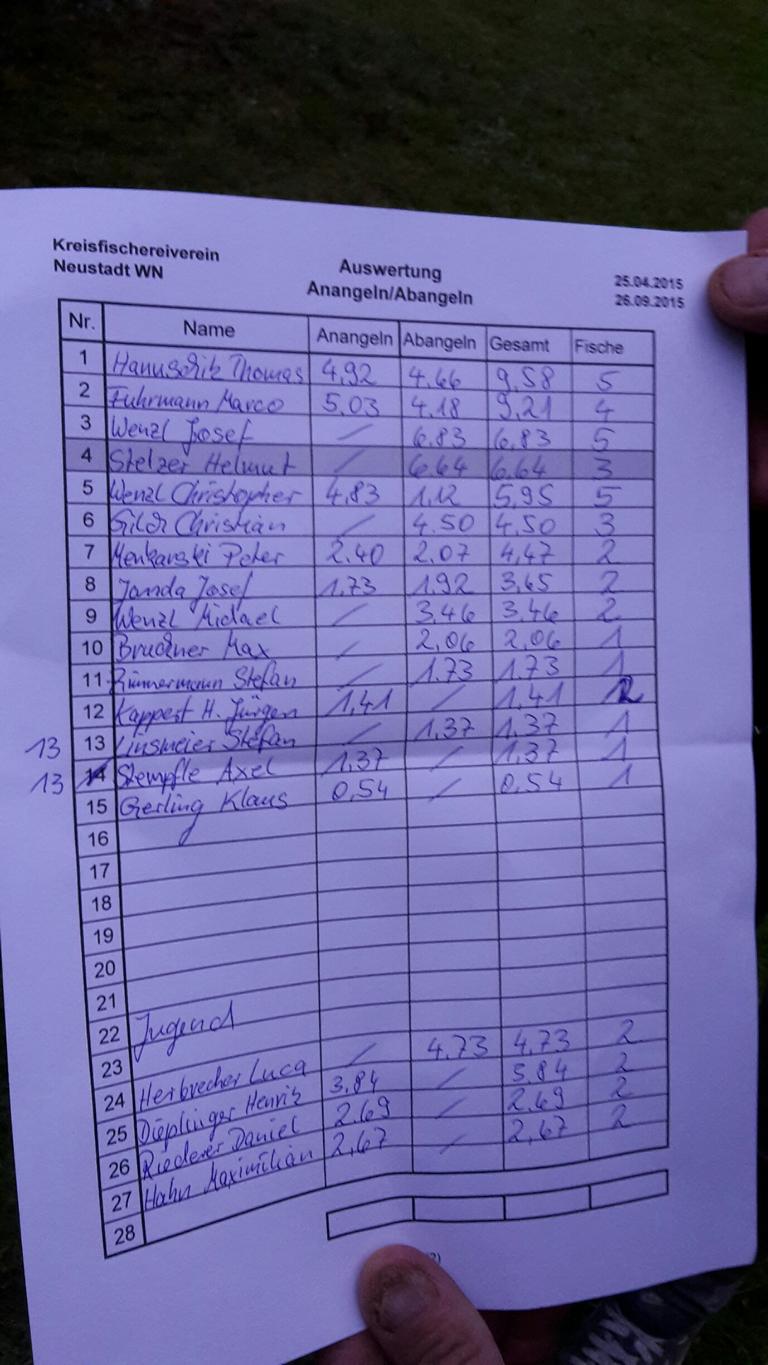 Kreisfischereiverein
Neustadt WN
Auswertung
Anangeln/Abangeln
25.04.2015
26.09.2015
Nr. Name Anangeln Abangeln Gesamt Fische
1 Hanuschik Thomas 4,92 4.66 9,58 5
2 Fuhrmann Marco 5,03 4.18 9,21 4
3 Wenzl Josef / 6.83 6,83 5
4 Stelzer Helmut / 6.64 6,64 3
5 Wenzl Christopher 4,83 1,12 5,95 5
6 Christian / 4.50 4,50 3
7 Peter 2.40 2,07 4,47 2
8 Janda Josef 1,73 1,92 3,65 2
9 Wenzl Michael / 3,46 3,46 2
10 Bruckner Max / 2,06 2,06 1
11 Zimmermann Stefan / 1.73 1.73 1
12 Kappert H. Jürgen 1,41 / 1,41 2
13 13 Linsmeier Stefan / 1,37 1,37 1
13 14 Stempfle Axel 1,37 / 1,37 1
15 Gerling Klaus 0,54 / 0,54 1
16
17
18
19
20
21
22 Jugend
23
24 Herbrecher Luca / 4,73 4,73 2
25 Henrik 3,84 / 3,84 2
26 Riederer Daniel 2,69 / 2,69 2
27 Hahn Maximilian 2,67 / 2,67 2
28